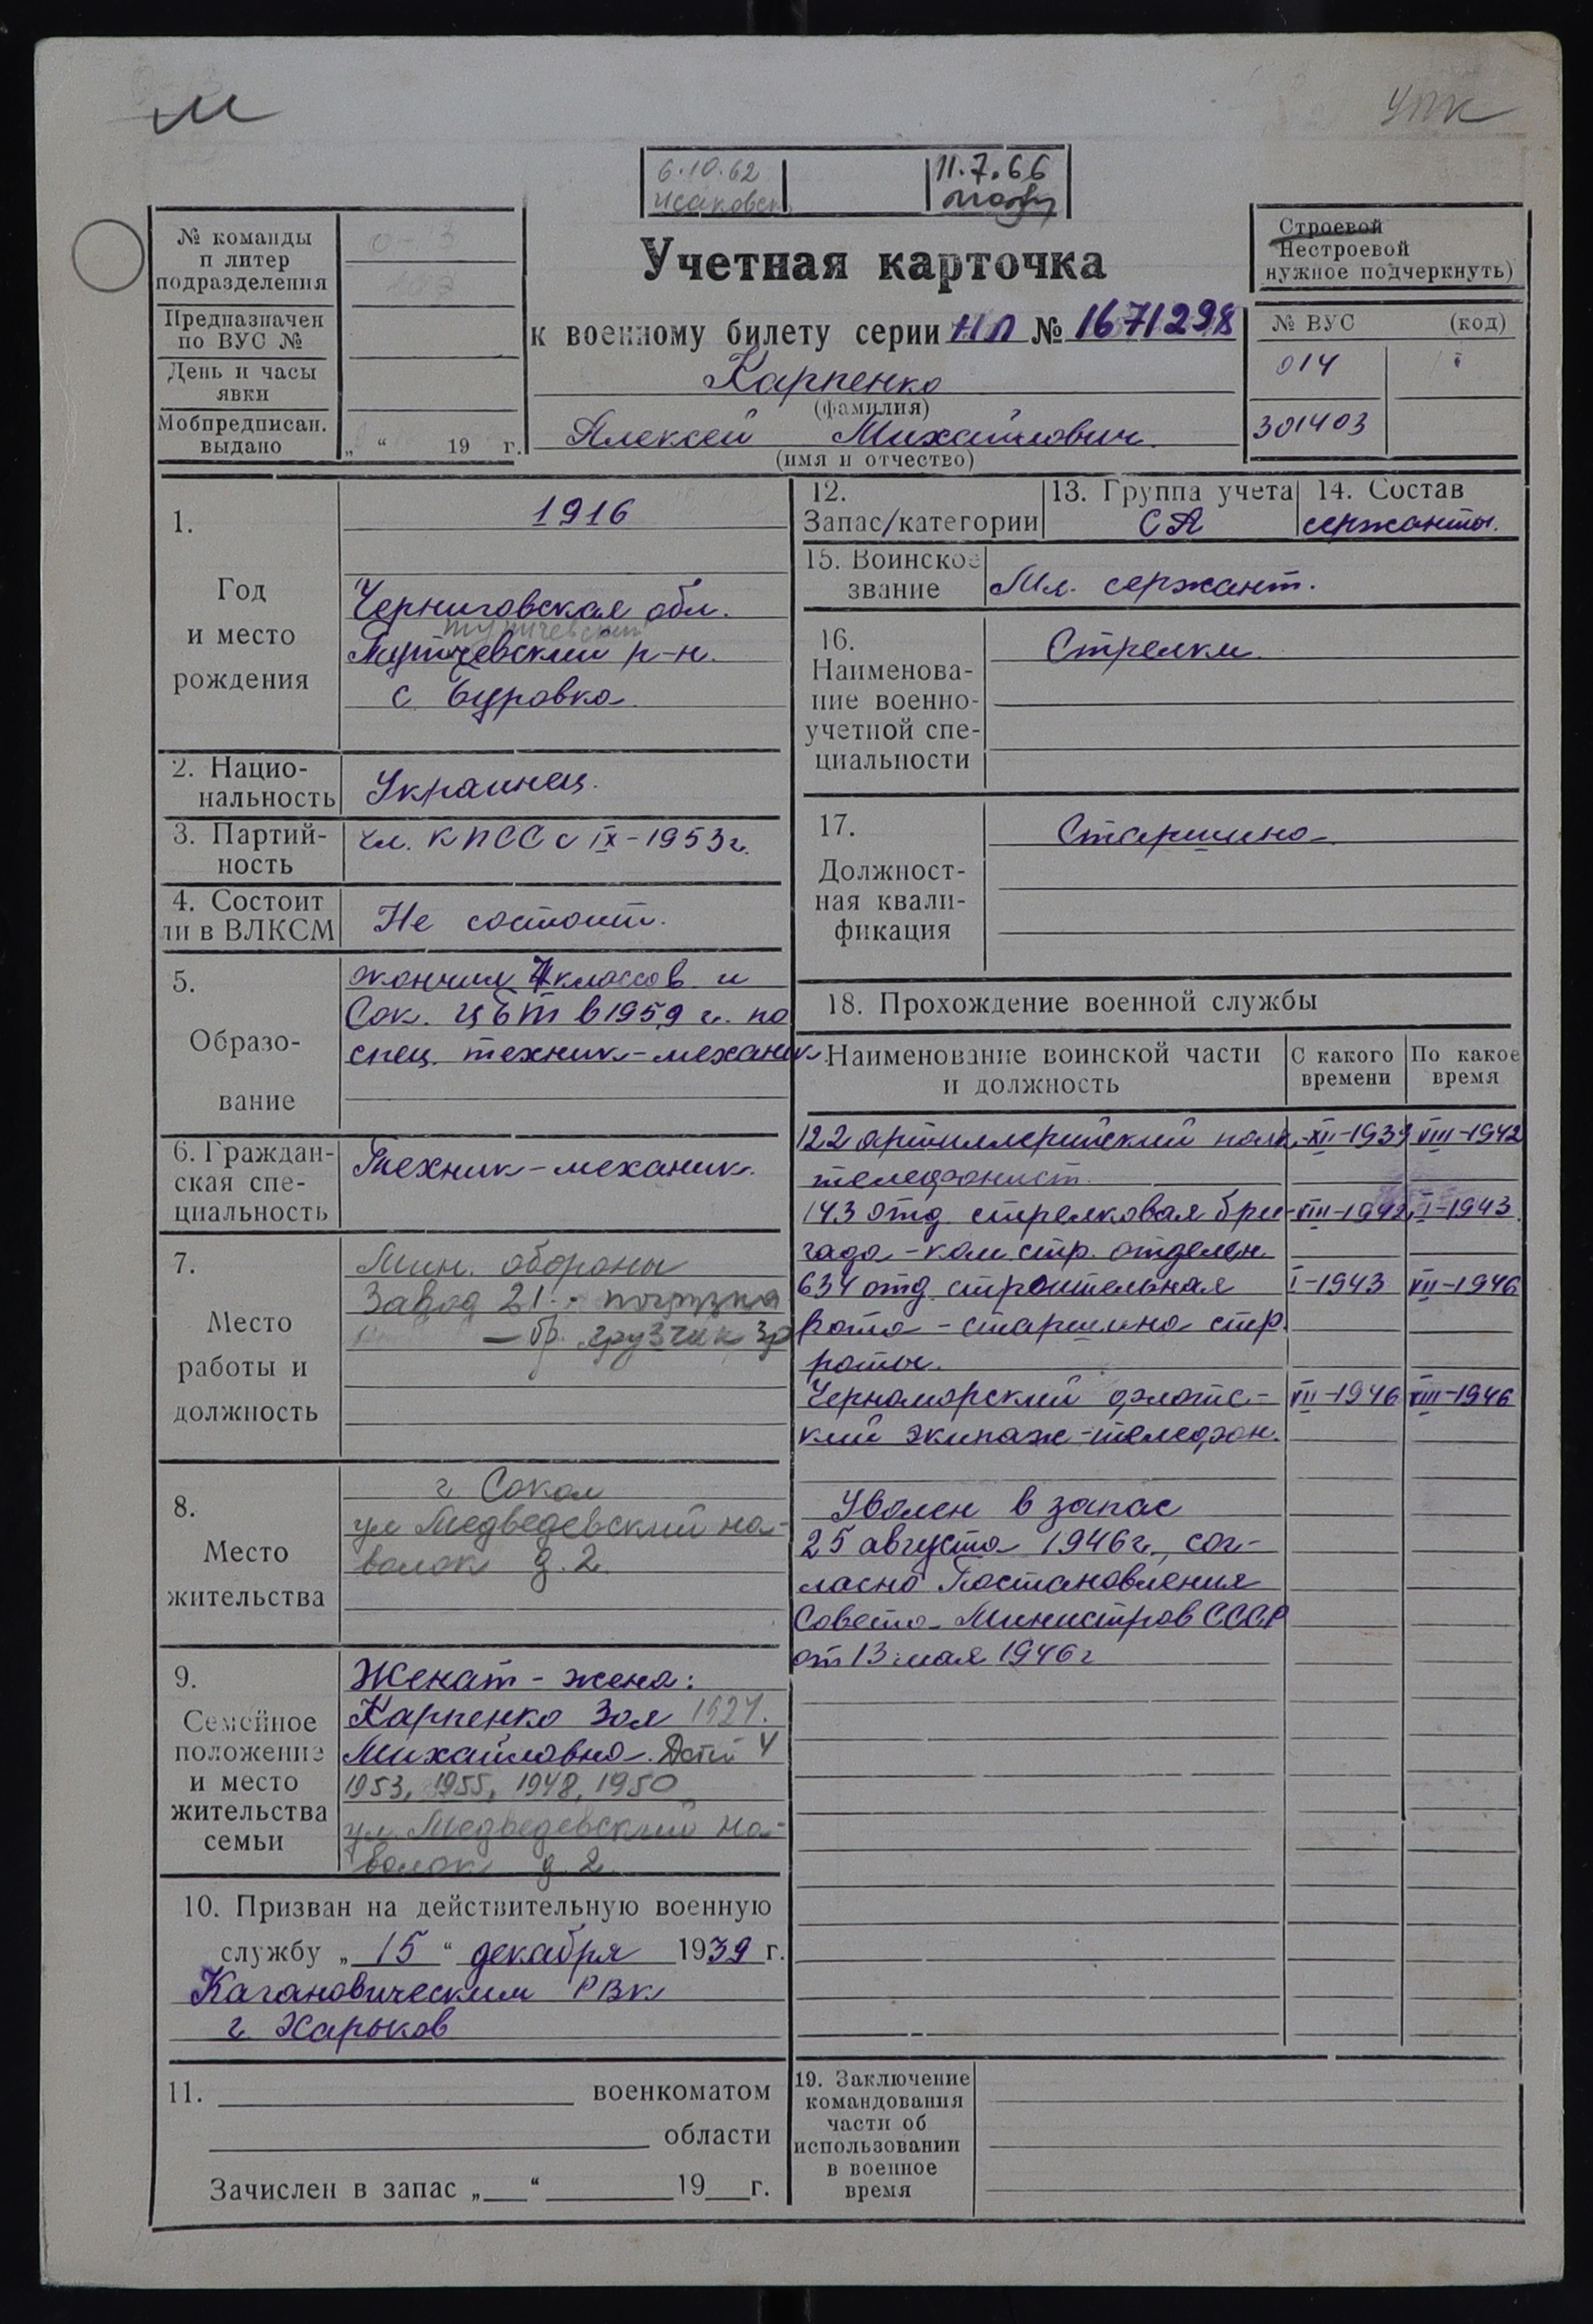 М
УПК
6.10.62
11.7.66
№ команды
п литер
подразделения
Предназначен
по ВУС №
День и часы
явки
Мобпредписан.
выдано
„ “ 19 г.
Учетная карточка
к военному билету серии НЛ № 1671298
Карпенко
(фамилия)
Алексей Михайлович
(имя и отчество)
Строевой
Нестроевой
нужное подчеркнуть)
№ ВУС (код)
014
301403
1.
Год
и место
рождения
1916
Черниговская обл.
р-н.
с Буровка
2. Нацио-
нальность
Украинец.
3. Партий-
ность
Чл. КПСС с IX-1953 г.
4. Состоит
ли в ВЛКСМ
Не состоит.
5.
Образо-
вание
окончил 7 классов и
Сок. ЦБТ в 1959 г. по
спец. техник-механик
6. Граждан-
ская спе-
циальность
Техник-механик.
7.
Место
работы и
должность
Мин. обороны
Завод 21
- бр. грузчик
8.
Место
жительства
г Сокол
ул Медведевский на-
волок д. 2.
9.
Семейное
положение
и место
жительства
семьи
Женат - жена:
Карпенко Зоя
Михайловна. Детей 4
1953, 1955, 1948, 1950
ул. Медведевский на-
волок д. 2
10. Призван на действительную военную
службу „ 15 “ декабря 1939 г.
Кагановическим РВк
г Харьков
11. военкоматом
области
Зачислен в запас „ “ 19 г.
12.
Запас/категории
13. Группа учета
СА
14. Состав
сержанты.
15. Воинское
звание
Мл. сержант.
16.
Наименова-
ние военно-
учетной спе-
циальности
Стрелки
17.
Должност-
ная квали-
фикация
Старшина
18. Прохождение военной службы
Наименование воинской части
и должность
С какого
времени
По какое
время
122 артиллерийский полк- XII-1939 VIII-1942
телефонист.
143 отд. стрелковая бри- VIII-1942 I-1943
гада - ком. стр. отделен.
634 отд. строительная I-1943 VII-1946
рота - старшина стр.
роты.
Черноморский флотс- VII-1946 VIII-1946
кий экипаж - телефон.
Уволен в запас
25 августа 1946 г., сог-
ласно Постановления
Совета Министров СССР
от 13 мая 1946 г
19. Заключение
командования
части об
использовании
в военное
время